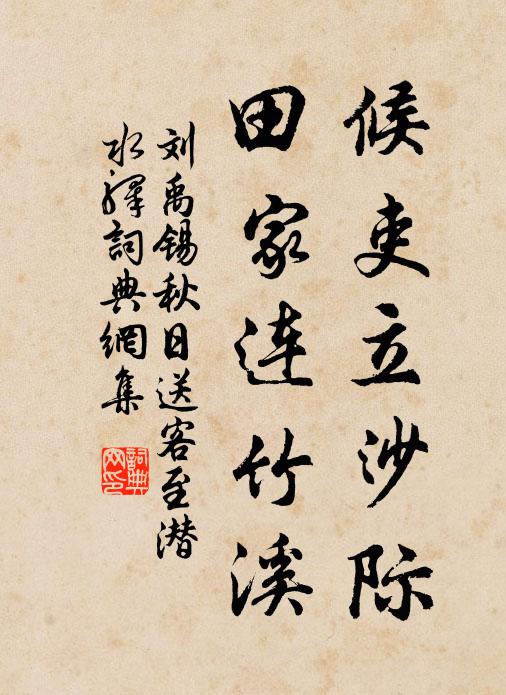 候吏立沙际
田家连竹溪
刘禹锡秋日送客至潜
水驿詞典網集
詞典网印